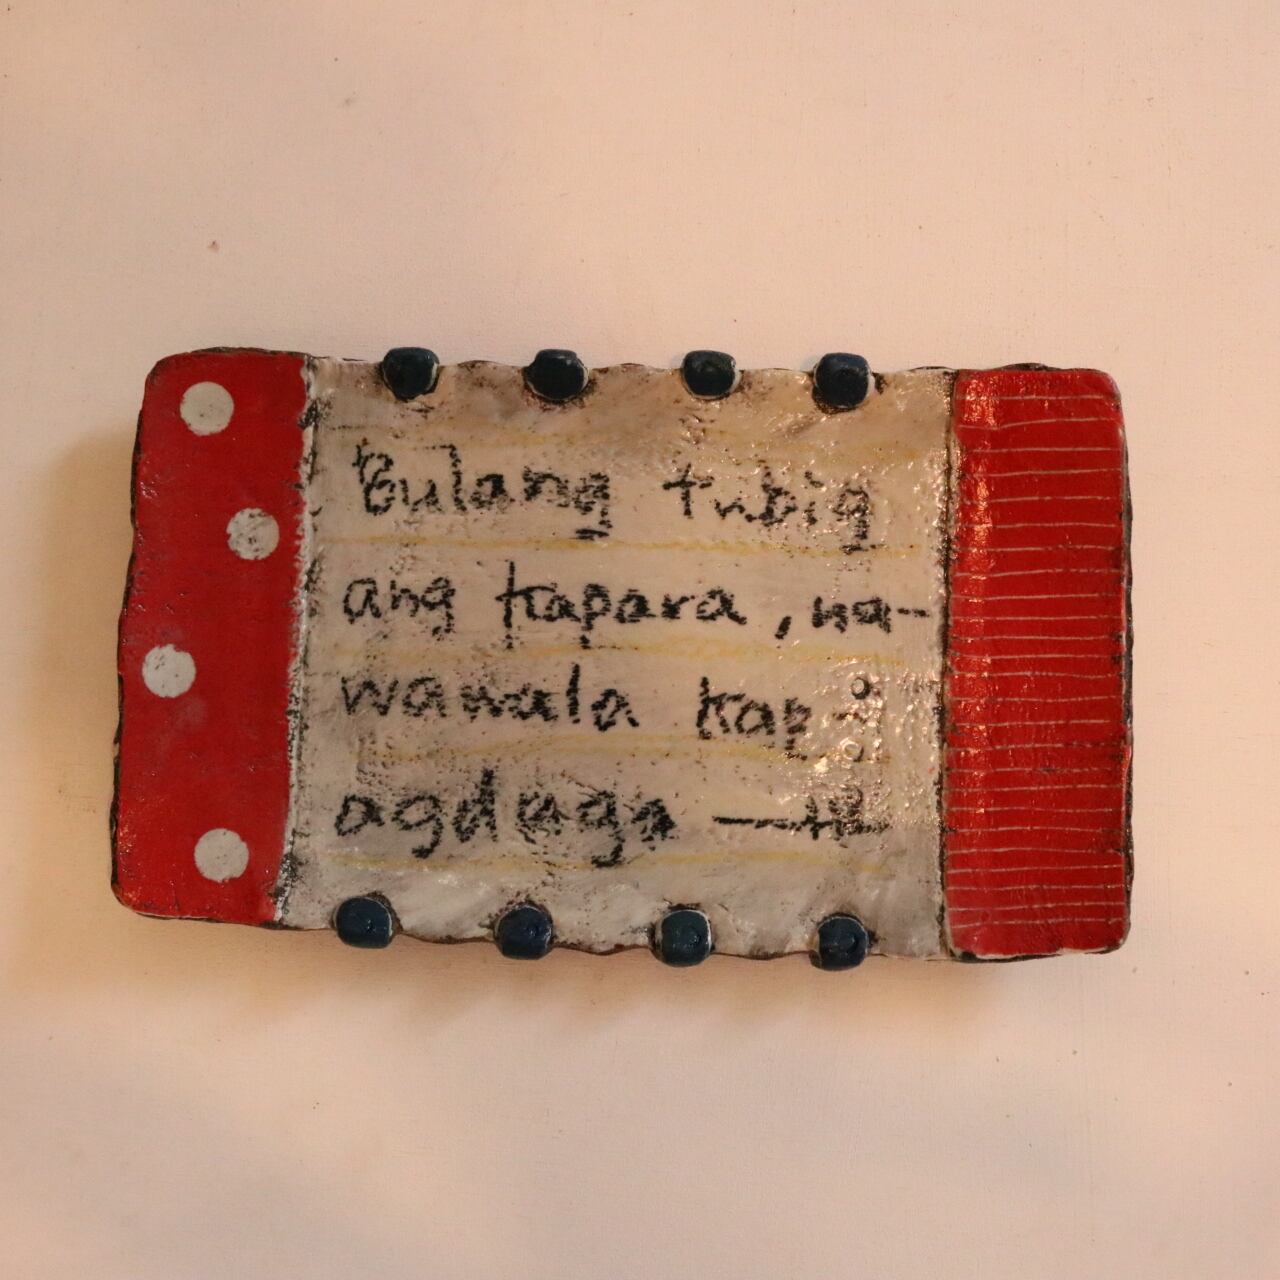 Bulang tubig
ang kapara, na-
wawala kap
agdaga